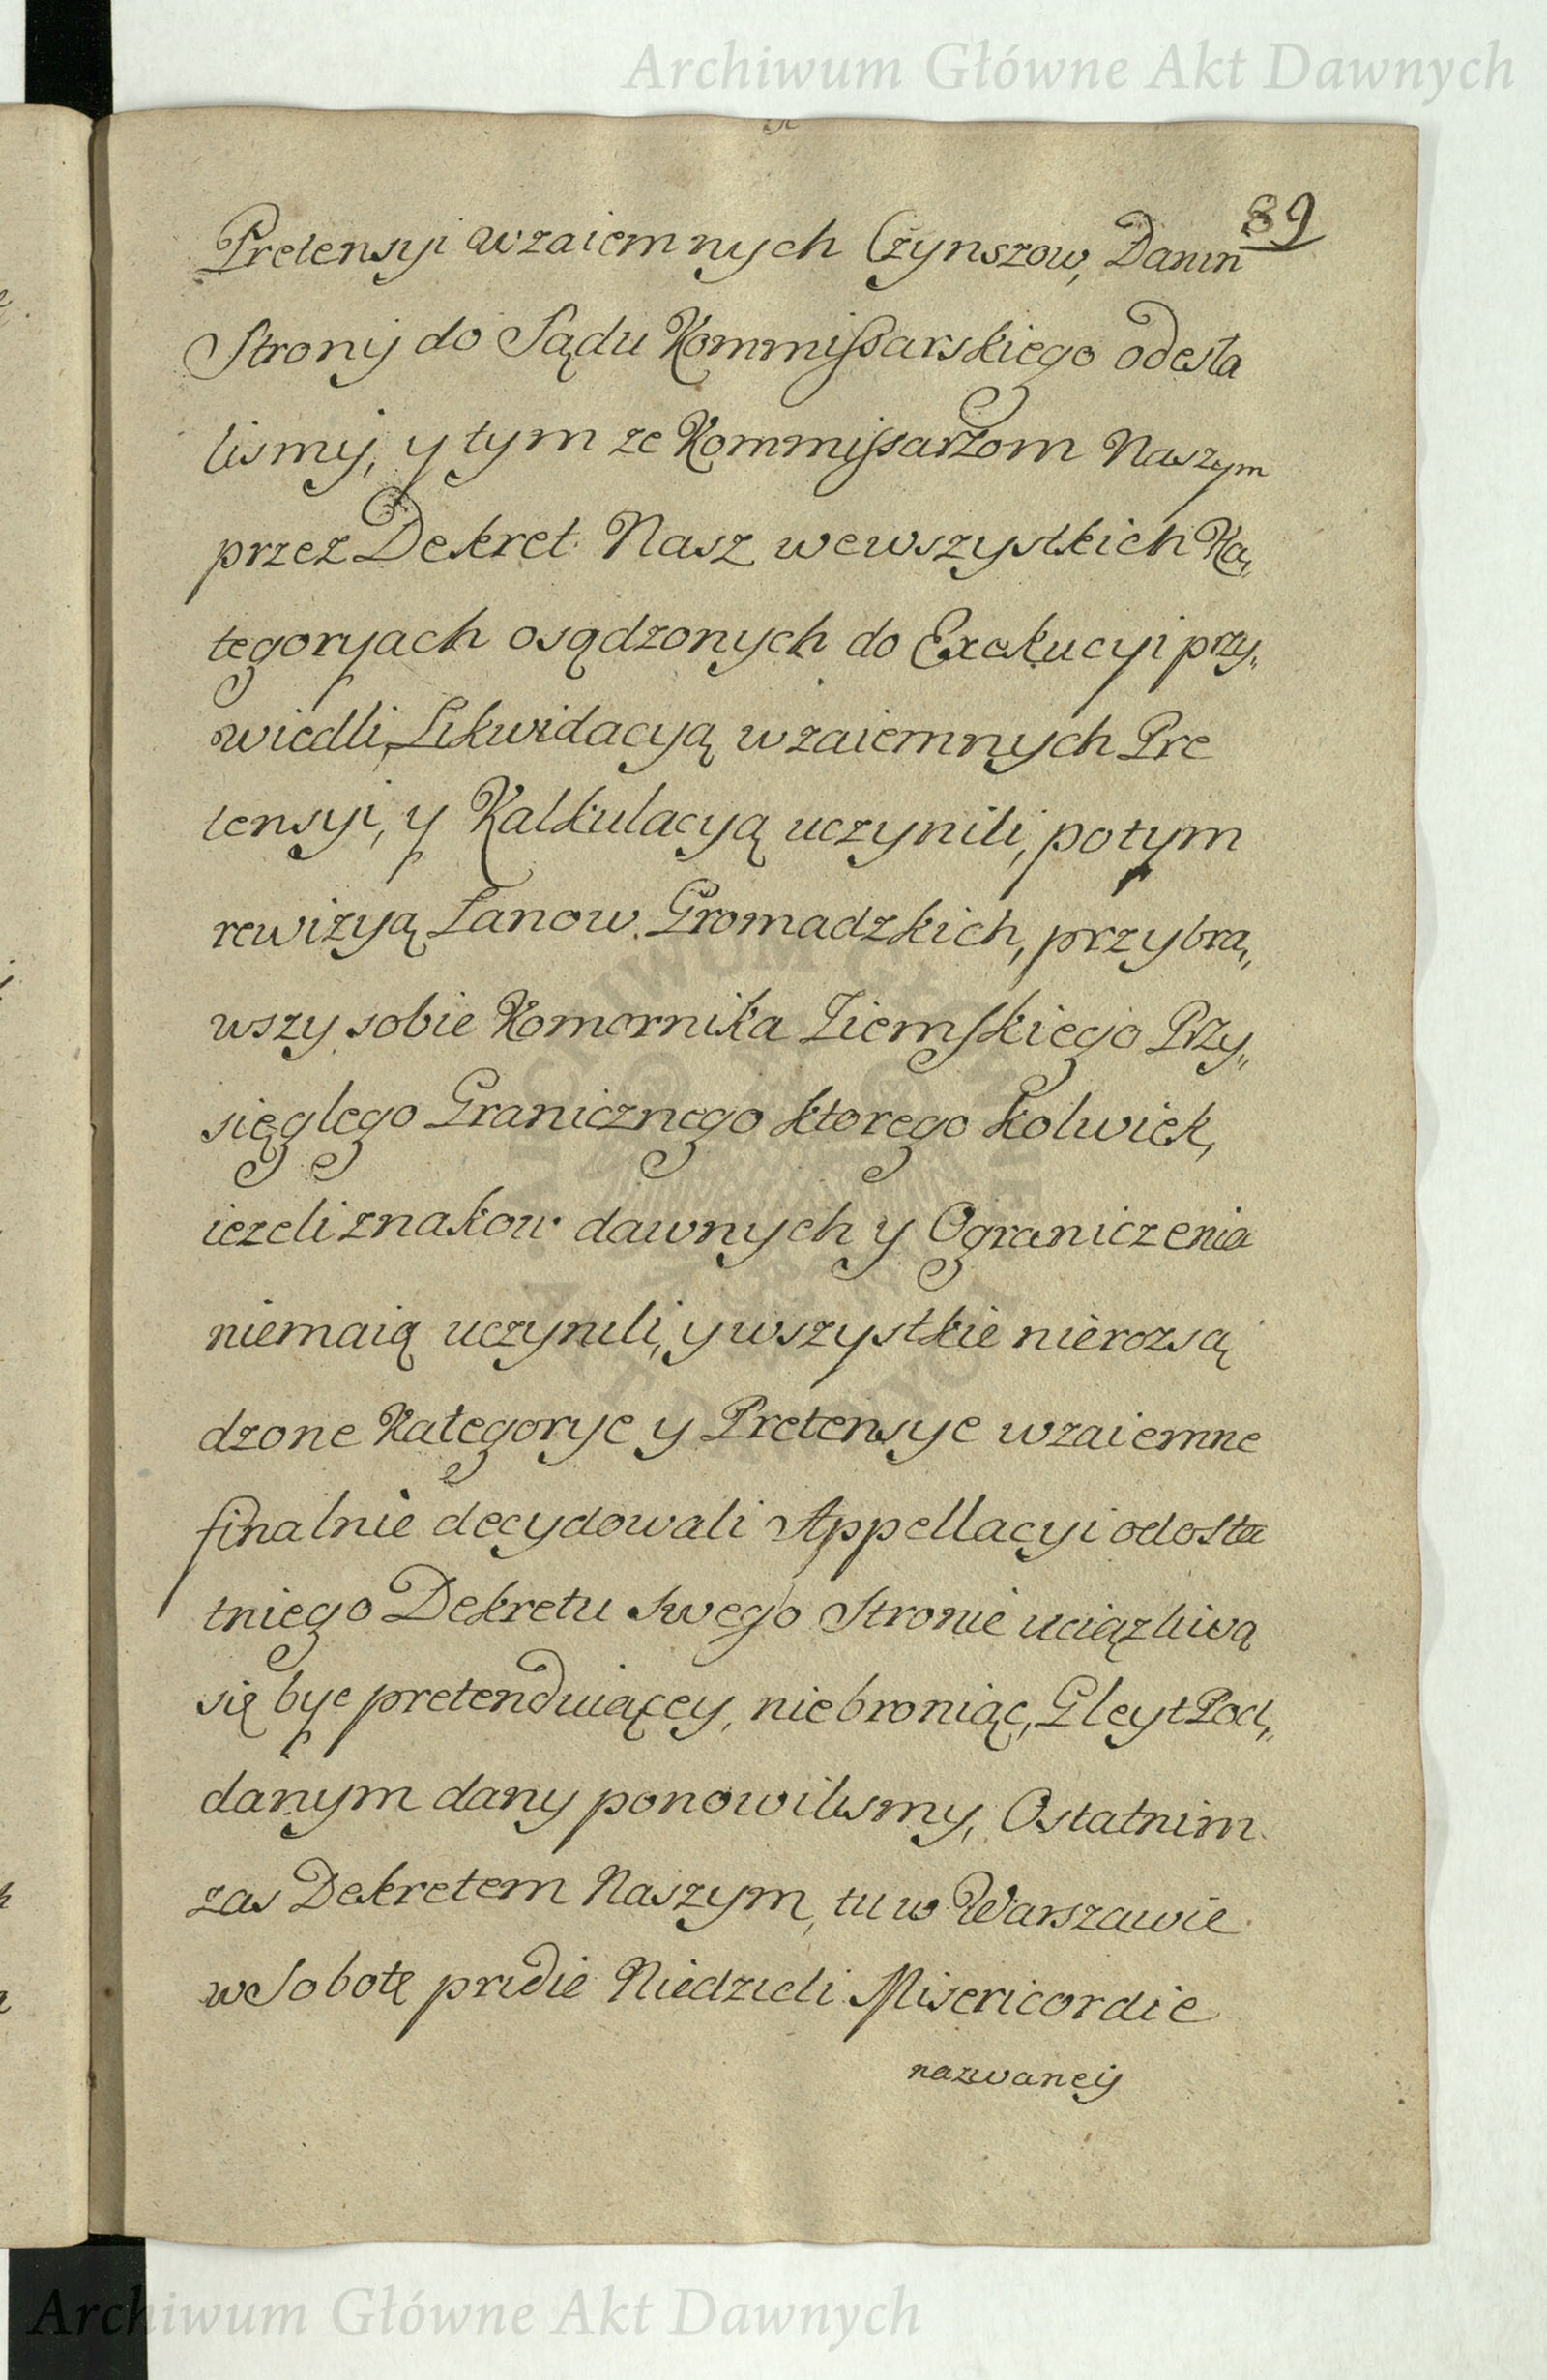 Archiwum Główne Akt Dawnych
89
Pretensyi wzaiemnych Czynszow, Danin
Strony do Sądu Kommissarskiego odesła
lismy, y tym ze Kommissarzom Naszym
przez Dekret Nasz wewszystkich Ka,
tegoryach osądzonych do Exekucyi przy,,
wiedli, Likwidacyą wzaiemnych Pre
tensyi, y Kalkulacyą uczynili, potym
rewizyą Lanow Gromadzkich, przybra,,
wszy sobie Komornika Ziemskiego Przy,,
sięglego Granicznego ktorego kolwiek,
iezeli znakow dawnych y Ograniczenia
niemaią uczynili, y wszystkie nierozsą
dzone Kategorye y Pretensye wzaiemne
finalnie decydowali Appellacyi odosta
tniego Dekretu swego Stronie uciązliwą
się byc pretenduiącey, niebroniąc, Gleyt Pod,,
danym dany ponowilismy, Ostatnim
zas Dekretem Naszym, tu w Warszawie
w Sobotę pridie Niedzieli Misericordie
nazwaney
Archiwum Główne Akt Dawnych